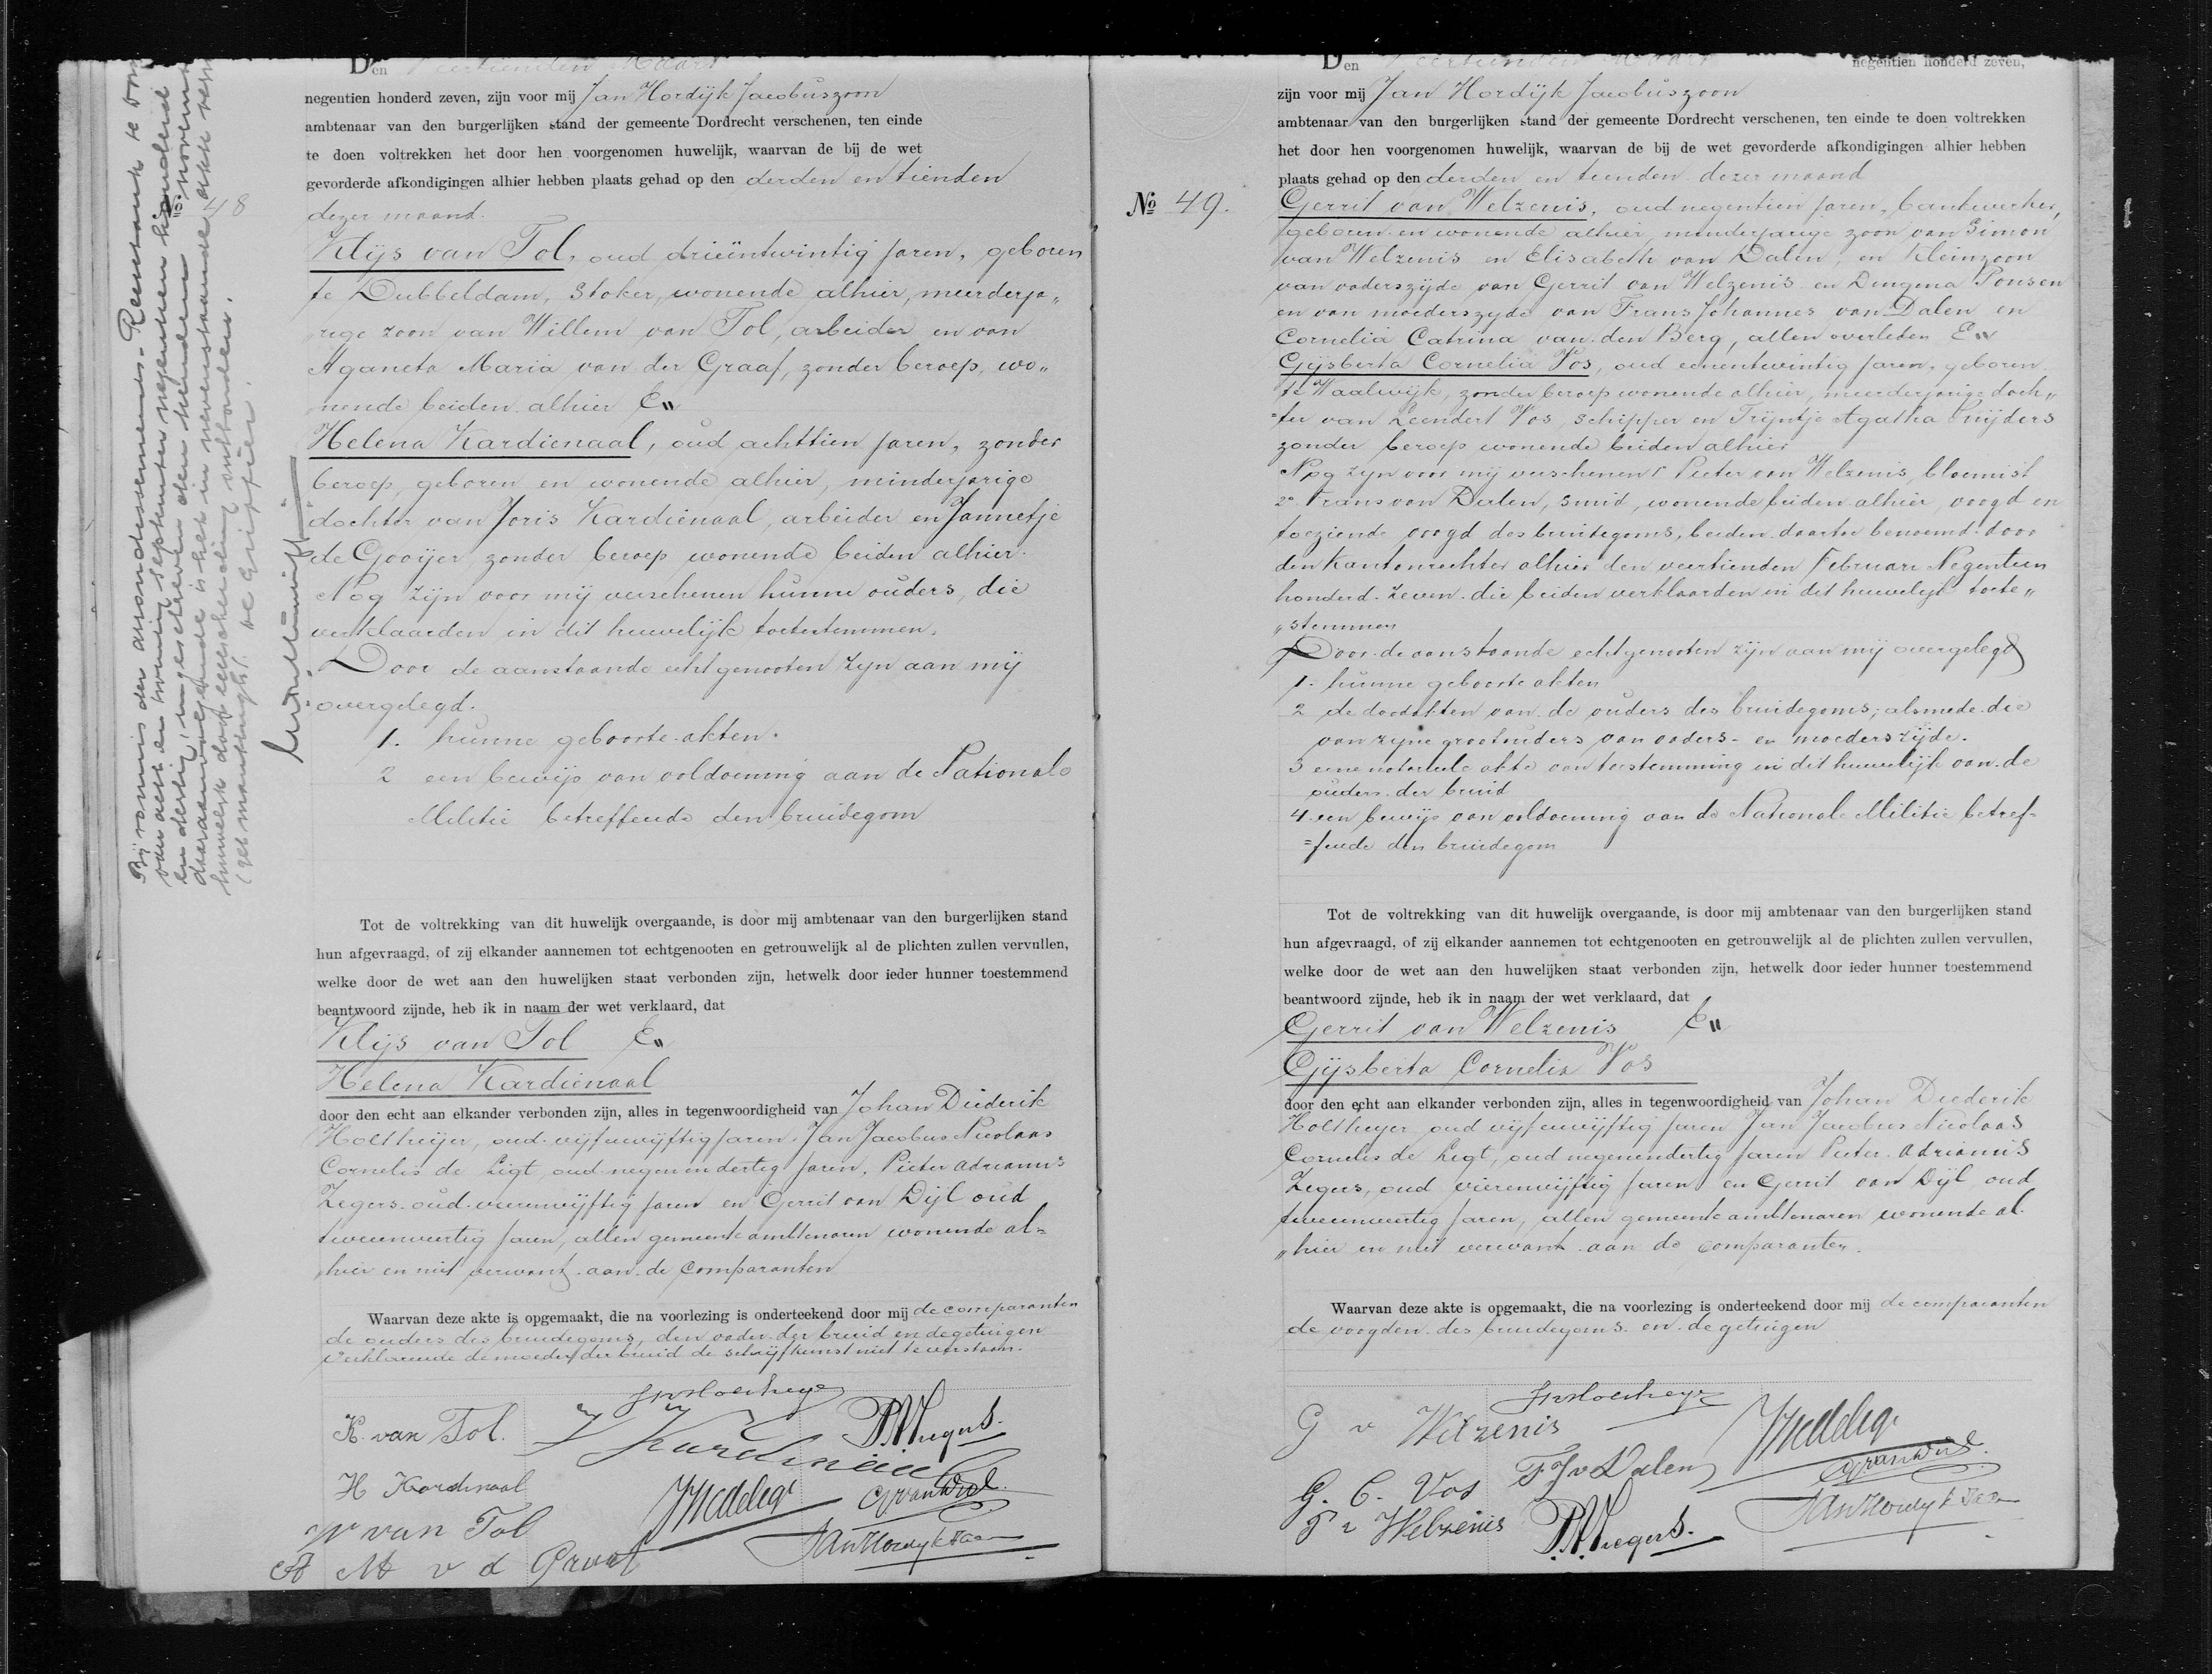 Den veertienden Maart
negentien honderd zeven, zijn voor mij Jan Hordijk Jacobuszoon
ambtenaar van den burgerlijken stand der gemeente Dordrecht verschenen, ten einde
te doen voltrekken het door hen voorgenomen huwelijk, waarvan de bij de wet
gevorderde afkondigingen alhier hebben plaats gehad op den derden en tienden
dezer maand.
No 48
Klijs van Tol, oud drieëntwintig jaren, geboren
te Dubbeldam, stoker, wonende alhier, meerderja„
rige zoon van Willem van Tol, arbeider en van
Aganeta Maria van der Graaf, zonder beroep, wo„
nende beiden alhier En
Helena Kardienaal, oud achttien jaren, zonder
beroep, geboren en wonende alhier, minderjarige
dochter van Joris Kardienaal, arbeider en Jannetje
de Gooijer zonder beroep wonende beiden alhier.
Nog zijn voor mij verschenen hunne ouders, die
verklaarden in dit huwelijk toetestemmen.
Door de aanstaande echtgenooten zyn aan mij
overgelegd.
1. hunne geboorte akten.
2 een bewijs van voldoening aan de Nationale
Militie betreffende den bruidegom
Tot de voltrekking van dit huwelijk overgaande, is door mij ambtenaar van den burgerlijken stand
hun afgevraagd, of zij elkander aannemen tot echtgenooten en getrouwelijk al de plichten zullen vervullen,
welke door de wet aan den huwelijken staat verbonden zijn, hetwelk door ieder hunner toestemmend
beantwoord zijnde, heb ik in naam der wet verklaard, dat
Klijs van Tol En
Helena Kardienaal
door den echt aan elkander verbonden zijn, alles in tegenwoordigheid van Johan Diederik
Holtheijer, oud vijfenvijftig jaren, Jan Jacobus Nicolaas
Cornelis de Ligt, oud negenendertig jaren, Pieter Adrianus
Zegers, oud vierenvijftig jaren en Gerrit van Dijl oud
tweeenveertig jaren, allen gemeente ambtenaren wonende al=
hier en niet verwant aan de comparanten
Waarvan deze akte is opgemaakt, die na voorlezing is onderteekend door mij de comparanten
de ouders des bruidegoms, den vader der bruid en de getuigen
verklarende de moeder der bruid de schrijfkunst niet te verstaan.
K. van Tol.
H Kardinaal
W van Tol
A M v d Graaf
Bij vonnis der arrondissements-Rechtbank te
van acht en twintig September negentien honderd
en dertig, ingeschreven den
daaraanvolgende is het in nevenstaande akte
huwelijk door echtscheiding ontbonden.
De Griffier.
Den veertienden Maart negentien honderd zeven,
zijn voor mij Jan Hordijk Jacobuszoon
ambtenaar van den burgerlijken stand der gemeente Dordrecht verschenen, ten einde te doen voltrekken
het door hen voorgenomen huwelijk, waarvan de bij de wet gevorderde afkondigingen alhier hebben
plaats gehad op den derden en tienden dezer maand
No 49.
Gerrit van Welzenis, oud negentien jaren, bankwerker,
geboren en wonende alhier, minderjarige zoon van Simon
van Welzenis en Elisabeth van Dalen, en kleinzoon
van vaderszijde van Gerrit van Welzenis en Dingena Ponsen
en van moederszyde van Frans Johannes van Dalen en
Cornelia Catrina van den Berg, allen overleden En
Gijsberta Cornelia Vos, oud eenentwintig jaren, geboren
te Waalwijk, zonder beroep wonende alhier, meerderjarige doch„
=ter van Leendert Vos, schipper en Trijntje Agatha Snijders
zonder beroep wonende beiden alhier
Nog zyn voor mij verschenen 1° Pieter van Welzenis, bloemist
2° Frans van Dalen, smid, wonende beiden alhier, voogd en
toeziende voogd des bruidegoms, beiden daartoe benoemd door
den Kantonrechter alhier den veertienden Februari Negentien
honderd zeven die beiden verklaarden in dit huwelijk toete„
„stemmen
Door de aanstaande echtgenooten zijn aan mij overgelegd
1. hunne geboorte akten
2 de doodakten van de ouders des bruidegoms, alsmede die
van zyne grootouders van vaders- en moederszijde.
3 eene notarieele akte van toestemming in dit huwelijk van de
ouders der bruid
4 een bewijs van voldoening aan de Nationale Militie betref=
=fende den bruidegom
Tot de voltrekking van dit huwelijk overgaande, is door mij ambtenaar van den burgerlijken stand
hun afgevraagd, of zij elkander aannemen tot echtgenooten en getrouwelijk al de plichten zullen vervullen,
welke door de wet aan den huwelijken staat verbonden zijn, hetwelk door ieder hunner toestemmend
beantwoord zijnde, heb ik in naam der wet verklaard, dat
Gerrit van Welzenis En
Gijsberta Cornelia Vos
door den echt aan elkander verbonden zijn, alles in tegenwoordigheid van Johan Diederik
Holtheijer oud vijfenvijftig jaren Jan Jacobus Nicolaas
Cornelis de Ligt, oud negenendertig jaren Pieter Adrianus
Zegers, oud vierenvijftig jaren en Gerrit van Dijl oud
tweeenveertig jaren, allen gemeente ambtenaren wonende al.
„hier en niet verwant aan de comparanten.
Waarvan deze akte is opgemaakt, die na voorlezing is onderteekend door mij de comparanten
de voogden des bruidegoms en de getuigen
G v Welzenis
G. C. Vos F J v Dalen
P v Welzenis